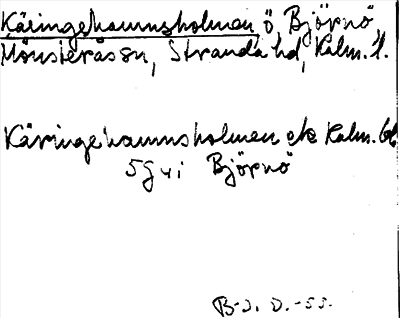 Käringehamnsholmen, ö, Björnö,
Mönsterås sn, Stranda hd, Kalm. l.
Käringehamnsholmen ek Kalm. bl.
5G4i Björnö
B-J. D. -53.